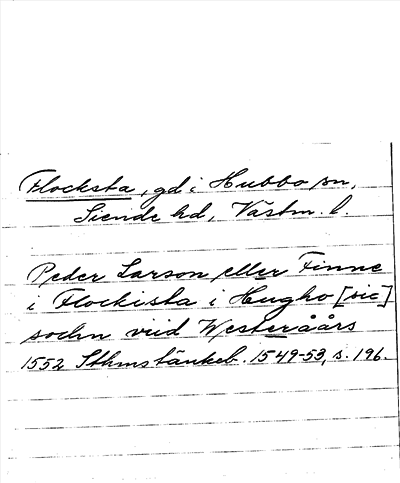 Flocksta, gd i Hubbo sn,
Siende hd, Västm. l.
Peder Larson eller Finne
i Flockista i Hugho [sic]
sochn viid Westeråårs
1552 Sthmstänkeb. 1549-53, s. 196.